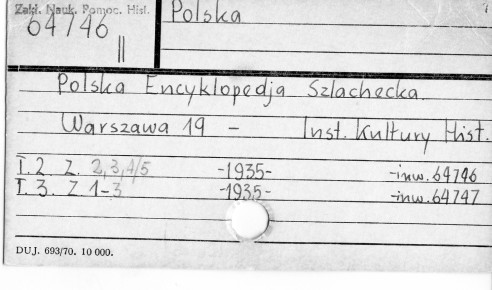 Zakł. Nauk. Pomoc. Hist.
64746
||
Polska
Polska Encyklopedja Szlachecka.
Warszawa 19 - Inst. Kultury Hist.
T. 2 Z. 2,3,4/5 -1935- -inw. 64746
T. 3. Z 1-3 -1935- -inw. 64747
DUJ. 693/70. 10 000.